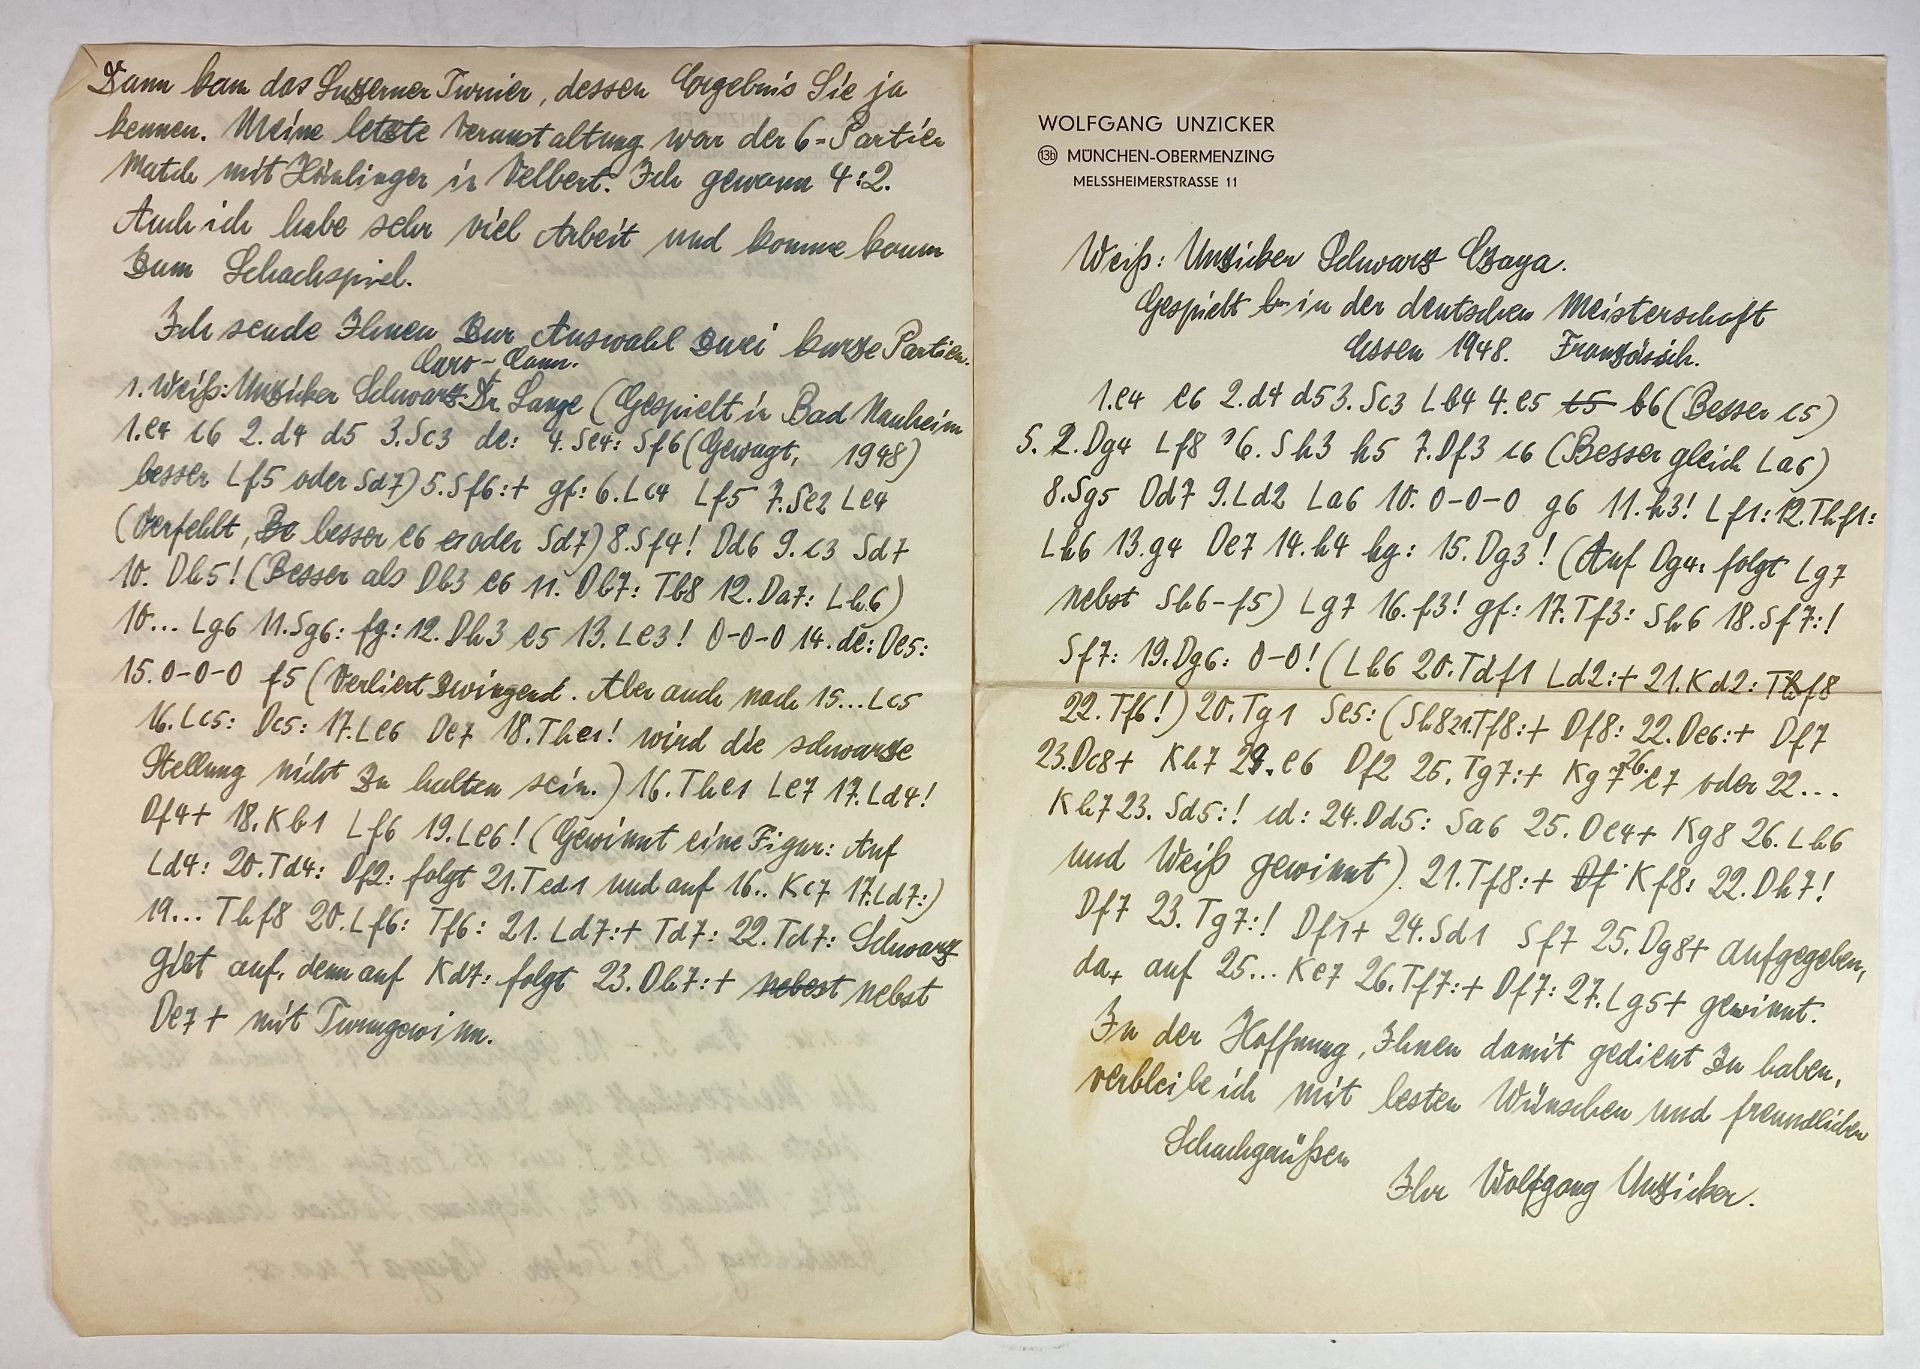 Dann kam das Luzerner Turnier, dessen Ergebnis Sie ja
kennen. Meine letzte Veranstaltung war der 6-Partien
Match mit Hönlinger in Velbert. Ich gewann 4:2.
Auch ich habe sehr viel Arbeit und komme kaum
zum Schachspiel.
Ich sende Ihnen zur Auswahl zwei kurze Partien.
Caro-Cann.
1. Weiß: Unzicker Schwarz Dr. Lange (Gespielt in Bad Nauheim
1.e4 c6 2.d4 d5 3.Sc3 de: 4.Se4: Sf6 (Gewagt, 1948)
besser Lf5 oder Sd7) 5.Sf6:+ gf: 6.Lc4 Lf5 7.Se2 Le4
(Verfehlt, besser e6 oder Sd7) 8.Sf4! Dd6 9.c3 Sd7
10. Dh5! (Besser als Db3 e6 11. Db7: Tb8 12.Da7: Lh6)
10... Lg6 11.Sg6: fg: 12. Dh3 e5 13. Le3! 0-0-0 14. de: De5:
15. 0-0-0 f5 (Verliert zwingend. Aber auch nach 15...Lc5
16.Lc5: Dc5: 17.Le6 De7 18.The1! wird die schwarze
Stellung nicht zu halten sein.) 16.The1 Le7 17.Ld4!
Df4+ 18.Kb1 Lf6 19.Le6! (Gewinnt eine Figur: Auf
Ld4: 20.Td4: Df2: folgt 21.Ted1 und auf 16.. Kc7 17.Ld7:)
19... Thf8 20.Lf6: Tf6: 21. Ld7:+ Td7: 22.Td7: Schwarz
gibt auf, denn auf Kd7: folgt 23. Dh7:+ nebest nebst
De7+ mit Turmgewinn.
WOLFGANG UNZICKER
13b MÜNCHEN-OBERMENZING
MELSSHEIMERSTRASSE 11
Weiß: Unzicker Schwarz Czaya.
Gespielt in der deutschen Meisterschaft
Essen 1948. Französisch.
1.e4 e6 2.d4 d5 3.Sc3 Lb4 4.e5 c5 b6 (Besser c5)
5. Dg4 Lf8 6. Sh3 h5 7.Df3 c6 (Besser gleich La6)
8.Sg5 Dd7 9.Ld2 La6 10. 0-0-0 g6 11.h3! Lf1: 12.Thf1:
Lh6 13.g4 De7 14.h4 hg: 15.Dg3! (Auf Dg4: folgt Lg7
nebst Sh6-f5) Lg7 16.f3! gf: 17.Tf3: Sh6 18.Sf7:!
Sf7: 19.Dg6: 0-0! (Lh6 20.Tdf1 Ld2:+ 21.Kd2: Thf8
22.Tf6!) 20.Tg1 Se5: (Sh8 21.Tf8:+ Df8: 22.De6:+ Df7
23.Dc8+ Kh7 24.e6 Df2 25.Tg7:+ Kg7 26.e7 oder 22...
Kh7 23. Sd5:! cd: 24.Dd5: Sa6 25. De4+ Kg8 26.Lh6
und Weiß gewinnt). 21.Tf8:+ Df Kf8: 22.Dh7!
Df7 23.Tg7:! Df1+ 24.Sd1 Sf7 25.Dg8+ aufgegeben,
da, auf 25... Ke7 26.Tf7:+ Df7: 27.Lg5+ gewinnt.
In der Hoffnung, Ihnen damit gedient zu haben,
verbleibe ich mit besten Wünschen und freundlichen
Schachgrüßen
Ihr Wolfgang Unzicker.